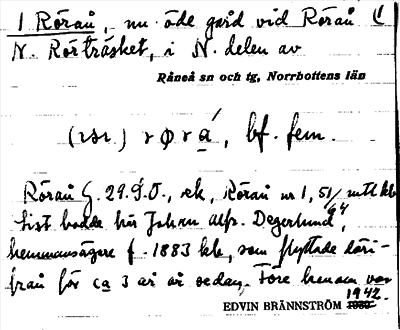 1 Rörån, nu öde gård vid Rörån
N. Rörträsket, i N. delen av
Råneå sn och tg, Norrbottens län
r ø r a, bf. fem.
Rörån G. 29.G.O., ek, Rörån nr 1, 51/94 mtl kb
Sist bodde här Johan Alfr. Degerlund,
hemmansägare f. 1883 kb, som flyttade däri-
från för ca 3 år år sedan. Före honom var
1942.
EDVIN BRÄNNSTRÖM